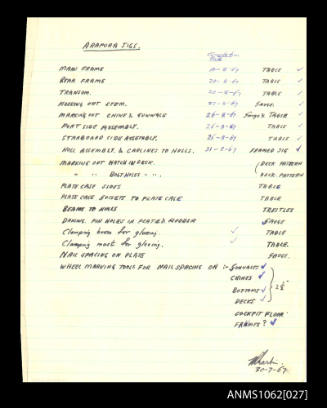 ARAFURA JIGS.
Completion Date
MAIN FRAME TABLE ✓
REAR FRAME TABLE ✓
TRANSOM. TABLE ✓
MARKING OUT CHINE & GUNWALE TABLE ✓
PORT SIDE ASSEMBLY. TABLE ✓
STARBOARD SIDE ASSEMBLY. TABLE ✓
HULL ASSEMBLY & CARLINES TO HULLS. FRAMED JIG ✓
MARKING OUT HATCH IN DECK. DECK PATTERN
" " BOLT HOLES " ". DECK PATTERN
PLATE CASE SIDES TABLE
PLATE CASE SOCKETS TO PLATE CASE TABLE
BEAMS TO HULLS TRESTLES
PIN HOLES IN PLATE & RUDDER GAUGE
Clamping boom for glueing ✓ TABLE
Clamping mast for glueing. ✓ TABLE.
NAIL SPACING ON PLATE GAUGE.
WHEEL MARKING TOOLS FOR NAIL SPACING ON :- GUNWALES ✓
CHINES ✓
BOTTOMS ✓
DECKS ✓
COCKPIT FLOOR
FRAMES? ✓
30-7-67
ANMS1062[027]